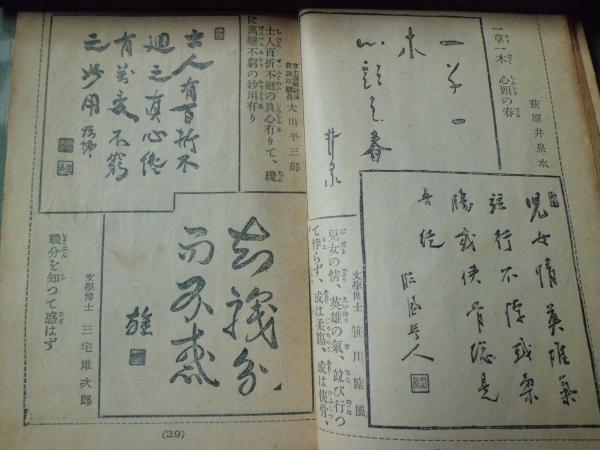 一草一
木
心頭之春
井泉
一草一木 心頭の春
荻原井泉水
兒女情英雄氣
竝行不悖或柔
腸或俠骨總是
吾徒
臨風學人
文學博士 笹川臨風
兒女の情、英雄の氣、竝び行つ
て悖らず、或は柔腸、或は俠骨、
士人有百折不
廻之真心纔
有萬變不窮
之妙用
大川平三郎
士人百折不廻の眞心有りて、纔
に萬變不窮の妙用有り
知職分
而不惑
雄
文學博士 三宅雄次郎
職分を知つて惑はず
(39)